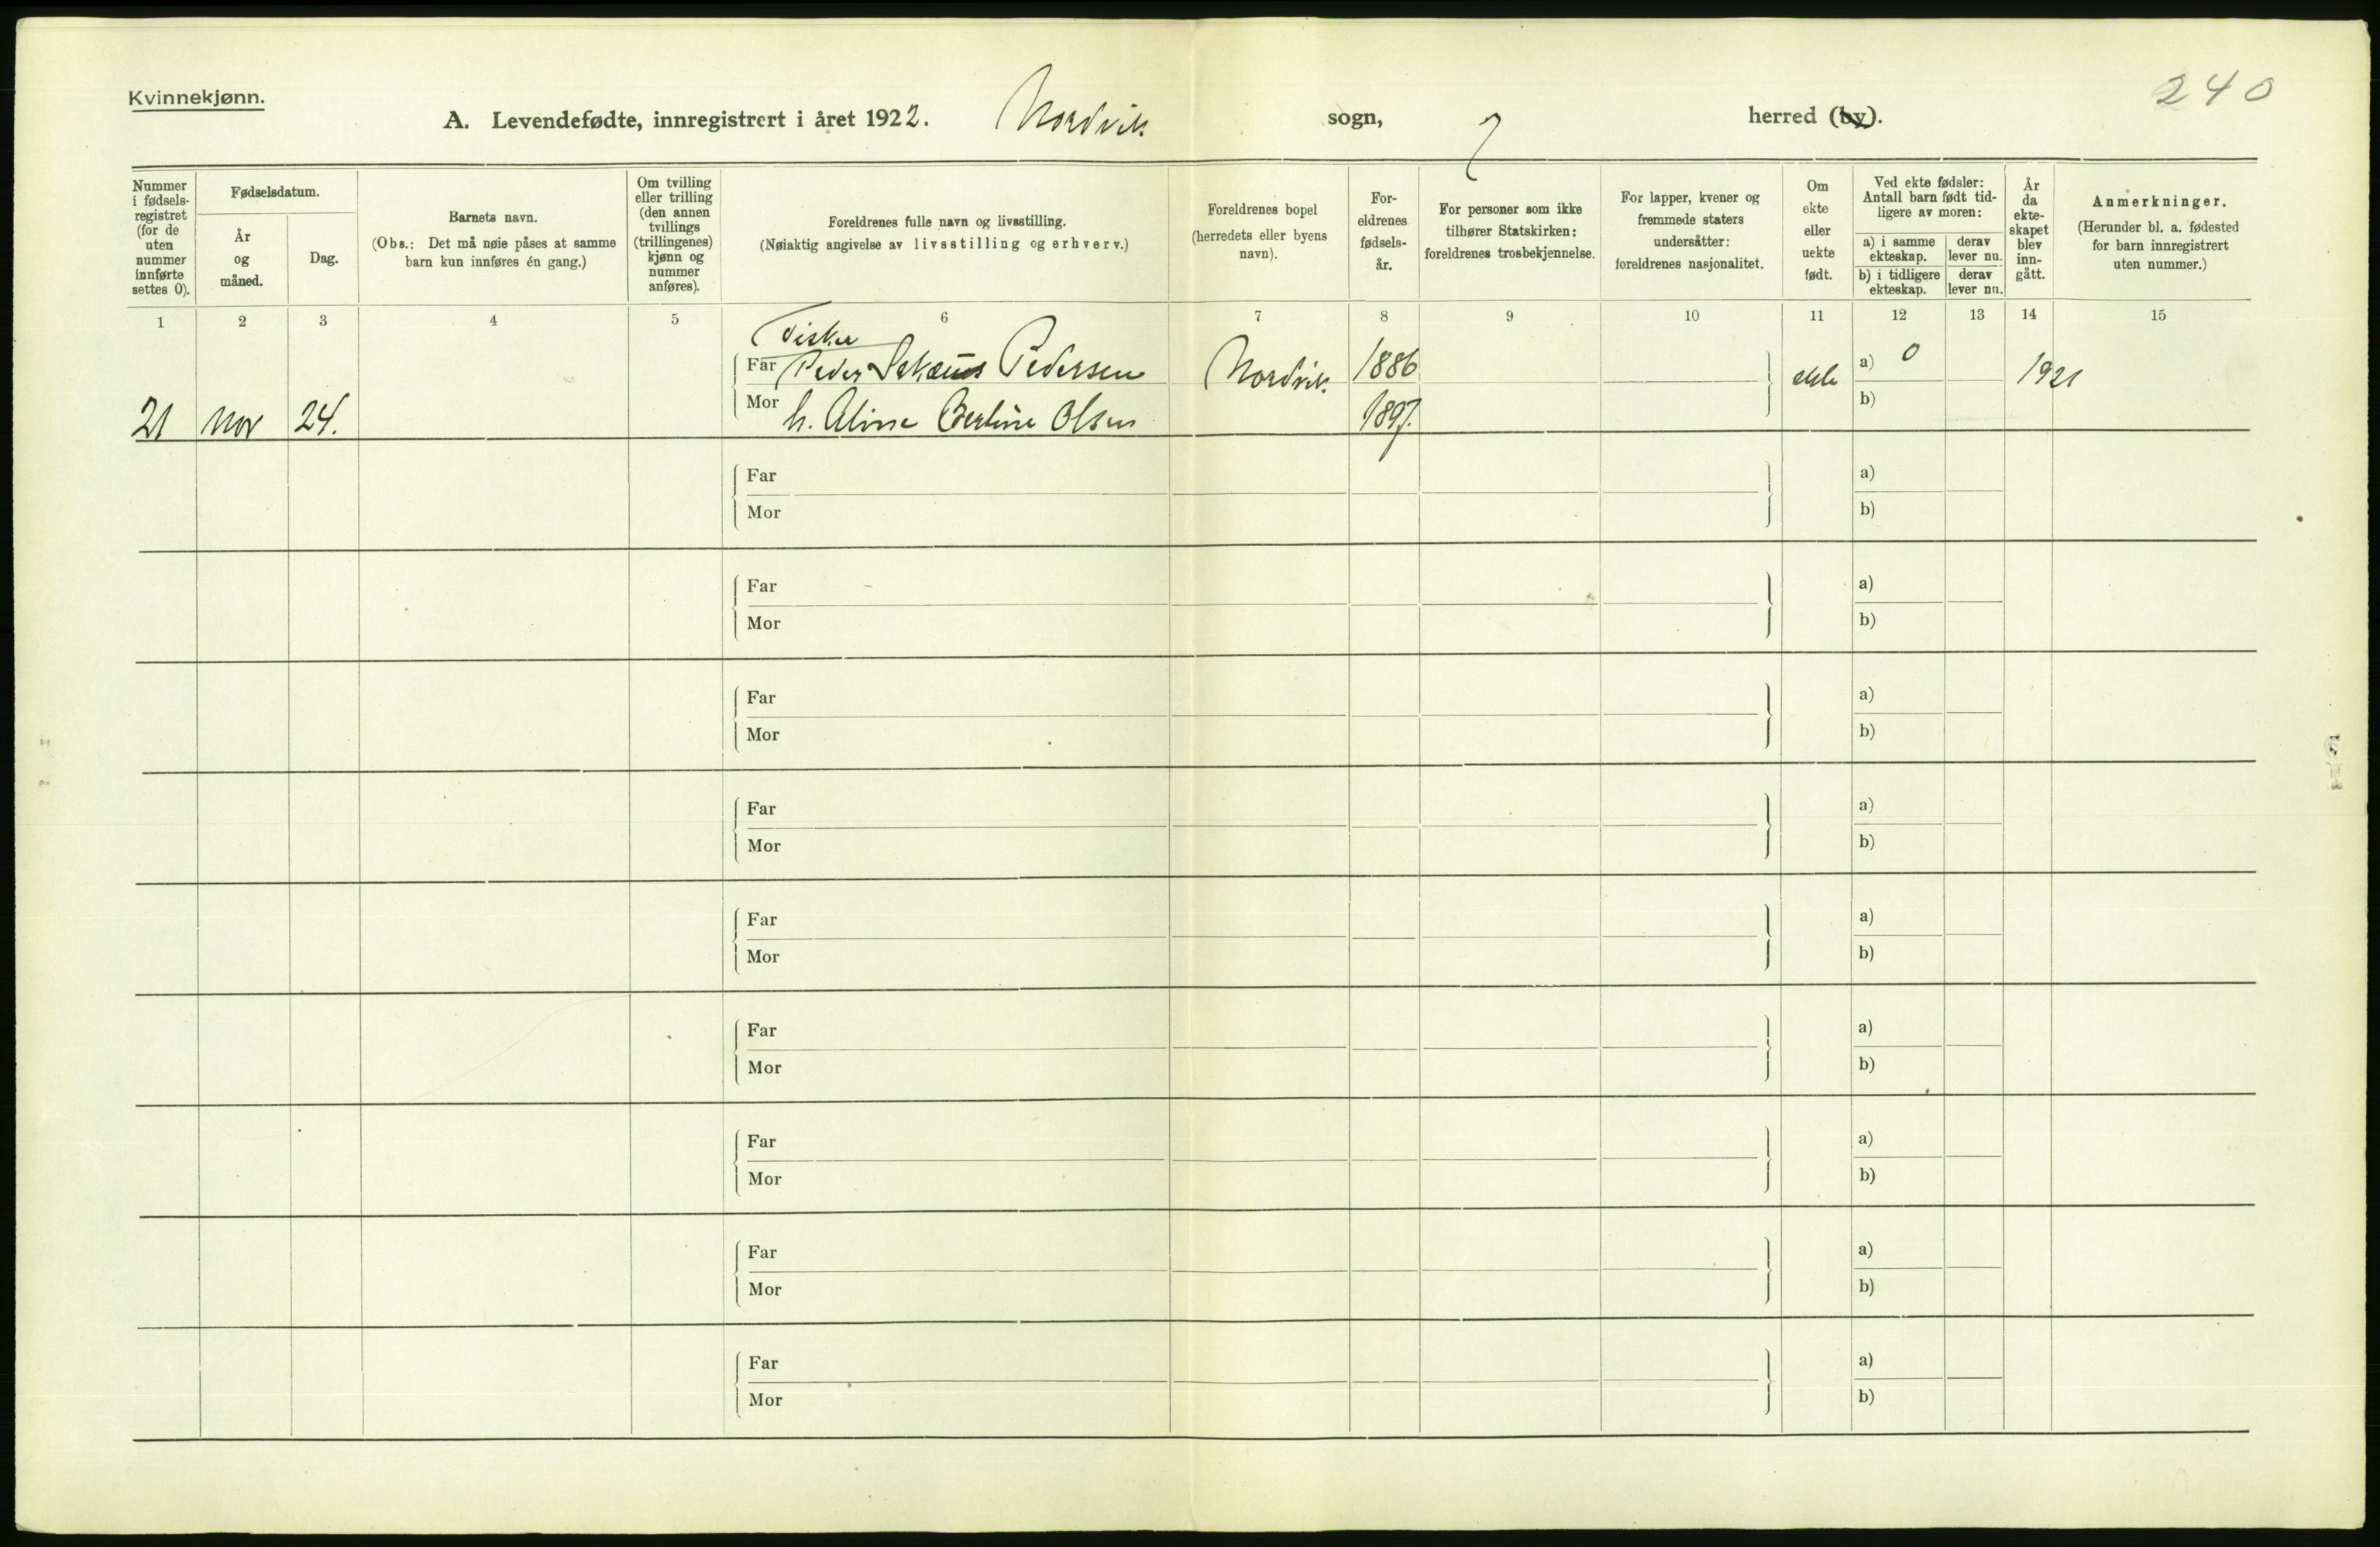 Kvinnekjønn.
240
A. Levendefødte, innregistrert i året 1922. Nordvik sogn, herred (by).
Nummer i fødsels-registret (for de uten nummer innførte settes 0).
Fødselsdatum.
År og måned.
Dag.
Barnets navn.
(Obs.: Det må nøie påses at samme barn kun innføres én gang.)
Om tvilling eller trilling (den annen tvillings (trillingenes) kjønn og nummer anføres).
Foreldrenes fulle navn og livsstilling.
(Nøiaktig angivelse av livsstilling og erhverv.)
Foreldrenes bopel (herredets eller byens navn).
For-eldrenes fødsels-år.
For personer som ikke tilhører Statskirken: foreldrenes trosbekjennelse.
For lapper, kvener og fremmede staters undersåtter: foreldrenes nasjonalitet.
Om ekte eller uekte født.
Ved ekte fødsler: Antall barn født tid-ligere av moren:
a) i samme ekteskap.
derav lever nu.
b) i tidligere ekteskap.
derav lever nu.
År da ekte-skapet blev inn-gått.
Anmerkninger.
(Herunder bl. a. fødested for barn innregistrert uten nummer.)
1 2 3 4 5 6 7 8 9 10 11 12 13 14 15
Fisker
Far Peder Pedersen Nordvik 1886 ekte a) 0 1921
21 Nov 24. Mor h. Bertine Olsen 1897. b)
Far a)
Mor b)
Far a)
Mor b)
Far a)
Mor b)
Far a)
Mor b)
Far a)
Mor b)
Far a)
Mor b)
Far a)
Mor b)
Far a)
Mor b)
Far a)
Mor b)